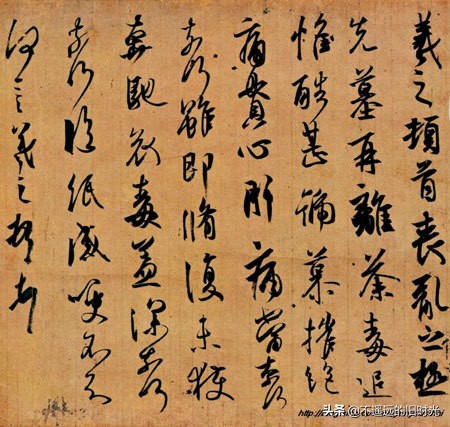 羲之頓首喪亂之極
先墓再離荼毒追
惟酷甚號慕摧絕
痛貫心肝痛當奈何
奈何雖即脩復未獲
奔馳哀毒益深奈何
奈何臨紙感哽不知
何言羲之頓首頓首
http://
头条 @不遥远的旧时光